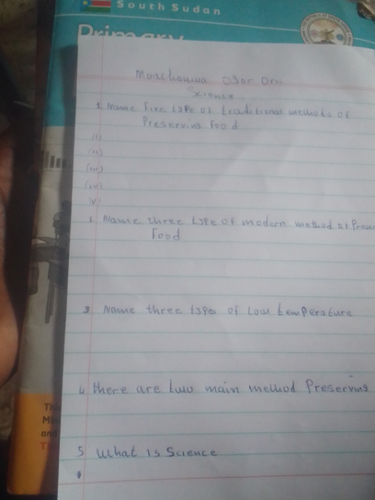 South Sudan
Primary
Science
1. Name five type of traditional methods of
Preserving food
(i)
(ii)
(iii)
(iv)
V)
Name three type of modern method of
Food
3 Name three types of Low temperature
4 there are two main method Preserving
5 What is Science